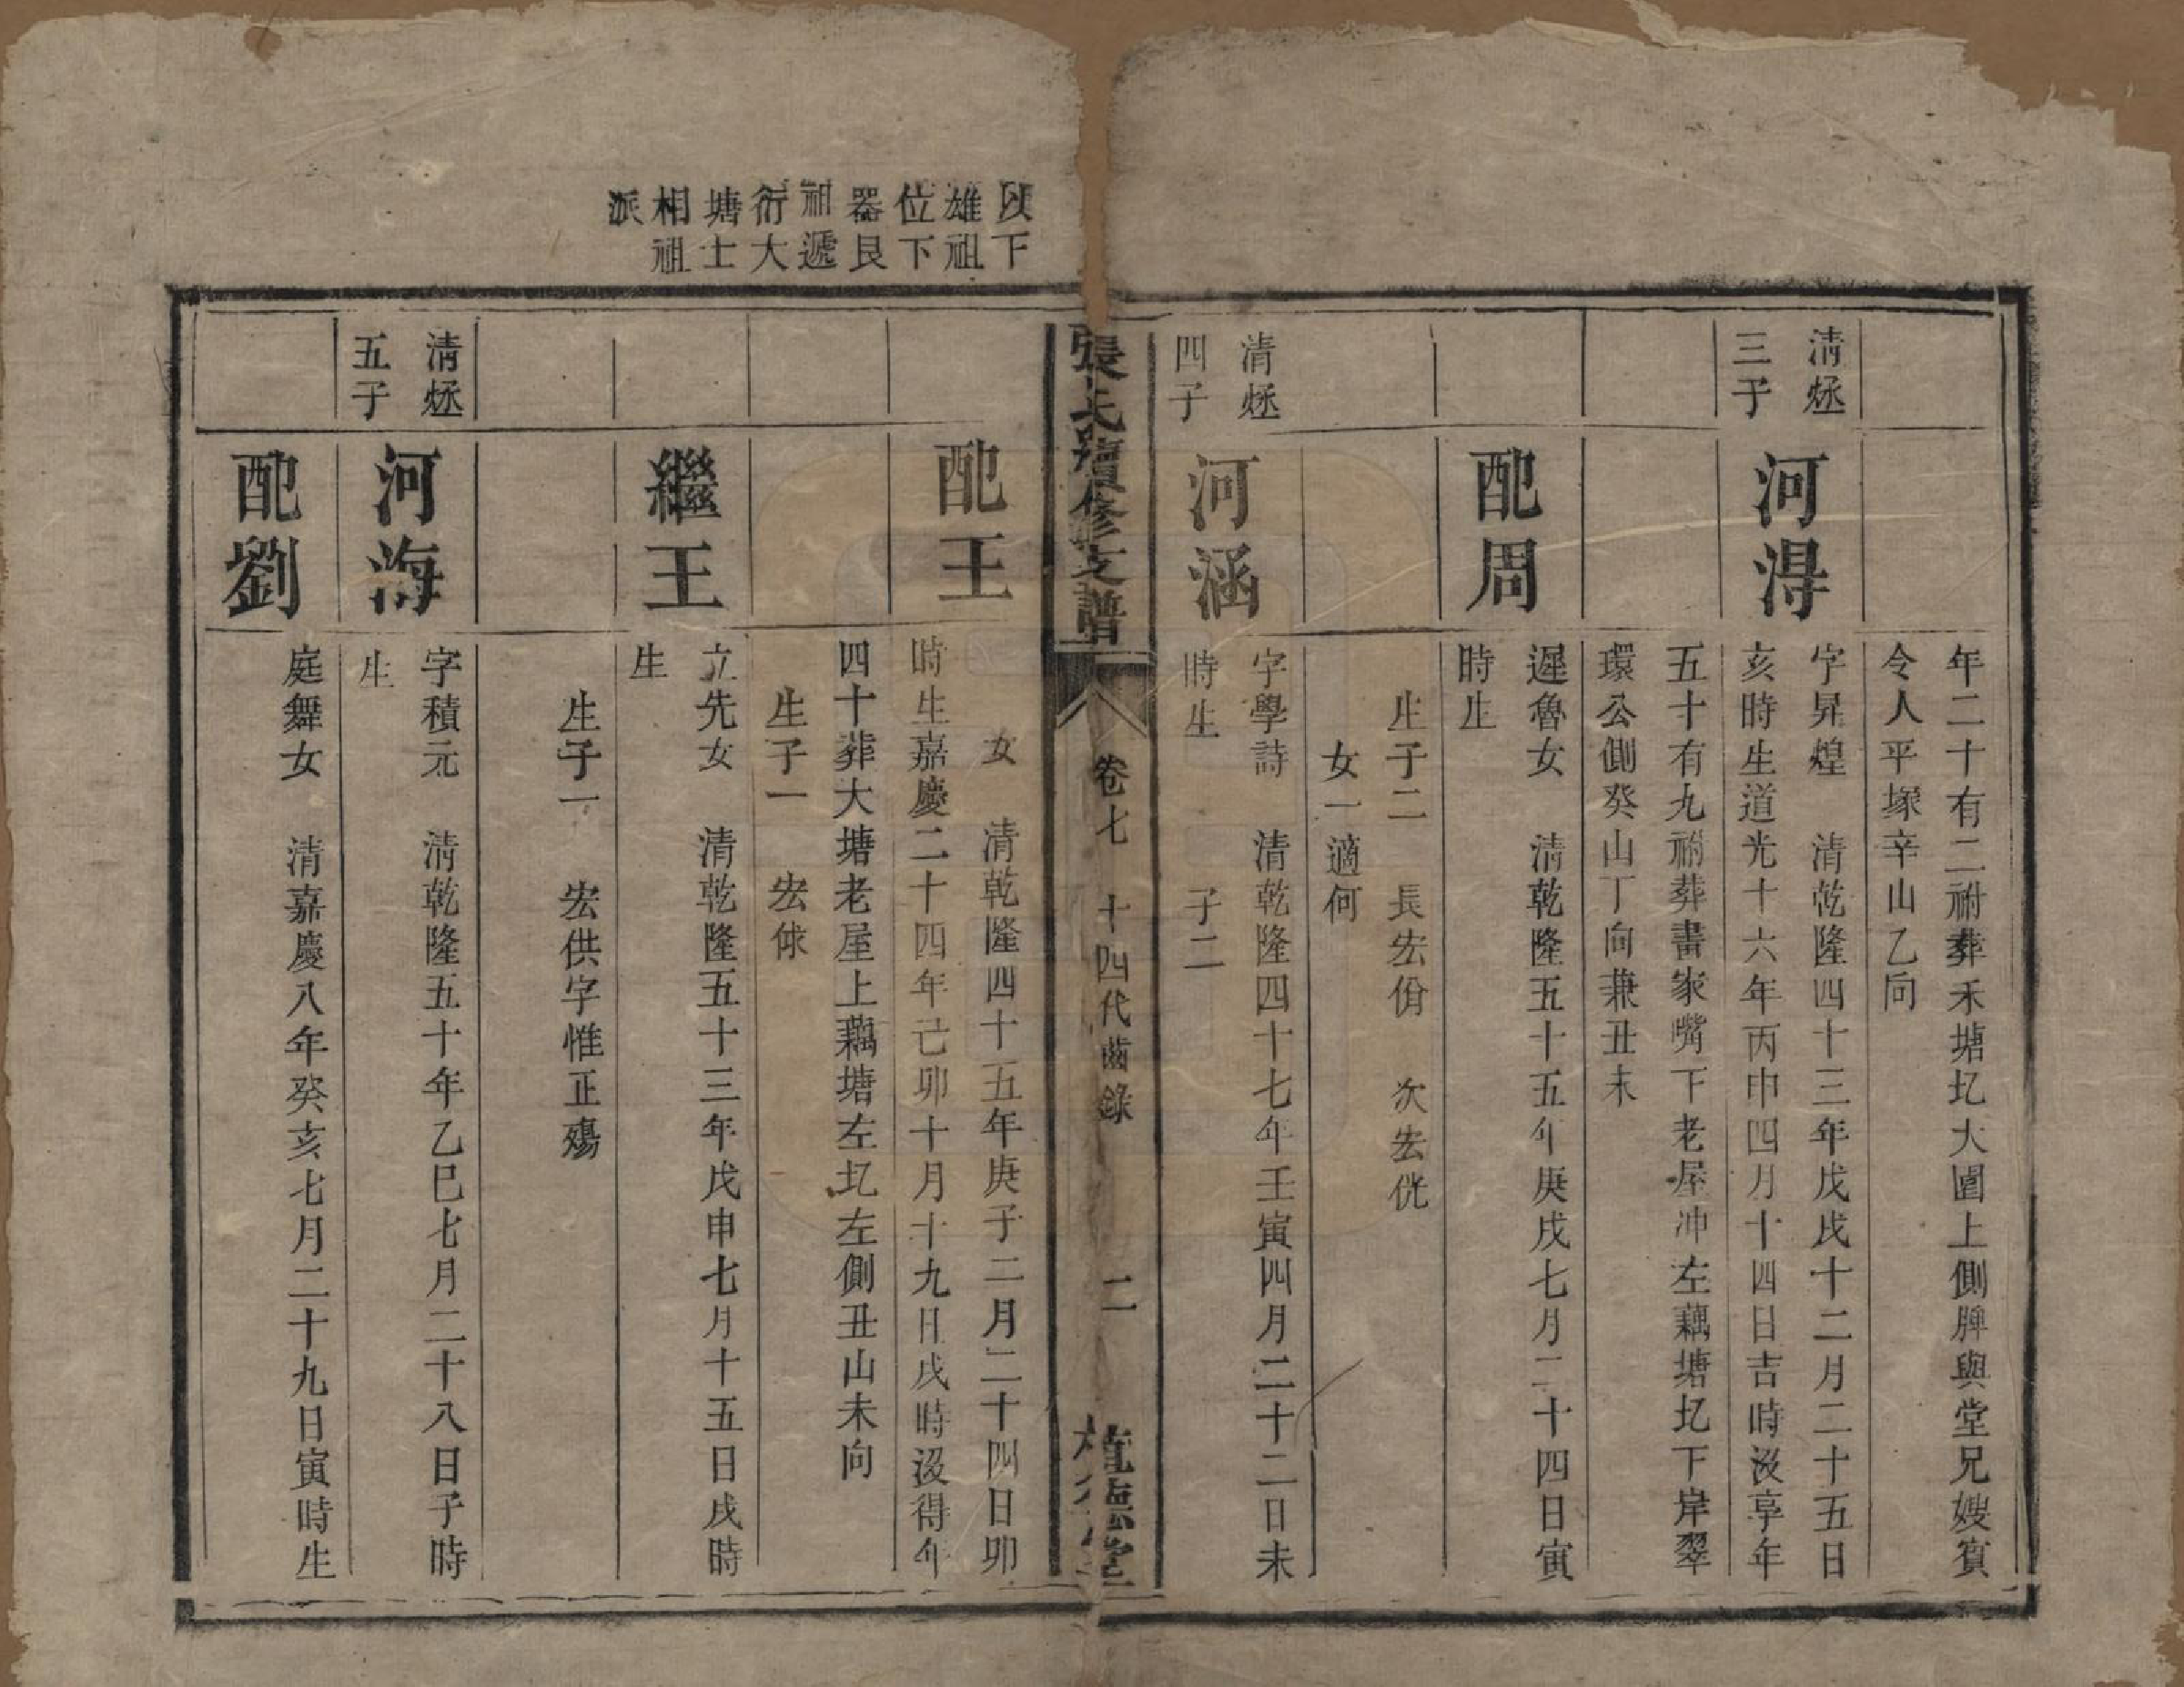 年二十有二祔葬禾塘圠大圍上側脾與堂兄嫂賔
令人平塚辛山乙向
清烝
三子
河淂
字昇煌　清乾隆四十三年戊戌十二月二十五日
亥時生道光十六年丙申四月十四日吉時沒享年
五十有九祔葬畵家嘴下老屋冲左藕塘圠下岸翠
環公側癸山丁向兼丑未
配周
遲魯女　清乾隆五十五年庚戌七月二十四日寅
時生
生子二　長宏佾　次宏侊
女一適何
清烝
四子
河涵
字學詩　清乾隆四十七年壬寅四月二十二日未
時生　　子二
張氏續修支譜
卷七　十四代齒錄
二
德堂
下
雄祖
位下
器艮
祖遞
衍大
塘士
相祖
派
配王
女　清乾隆四十五年庚子二月二十四日卯
時生嘉慶二十四年己卯十月十九日戌時沒得年
四十葬大塘老屋上藕塘左圠左側丑山未向
生子一　宏俅
繼王
立先女　清乾隆五十三年戊申七月十五日戌時
生
生子一　宏供字惟正殤
清烝
五子
河海
字積元　清乾隆五十年乙巳七月二十八日子時
生
配劉
庭舞女　清嘉慶八年癸亥七月二十九日寅時生